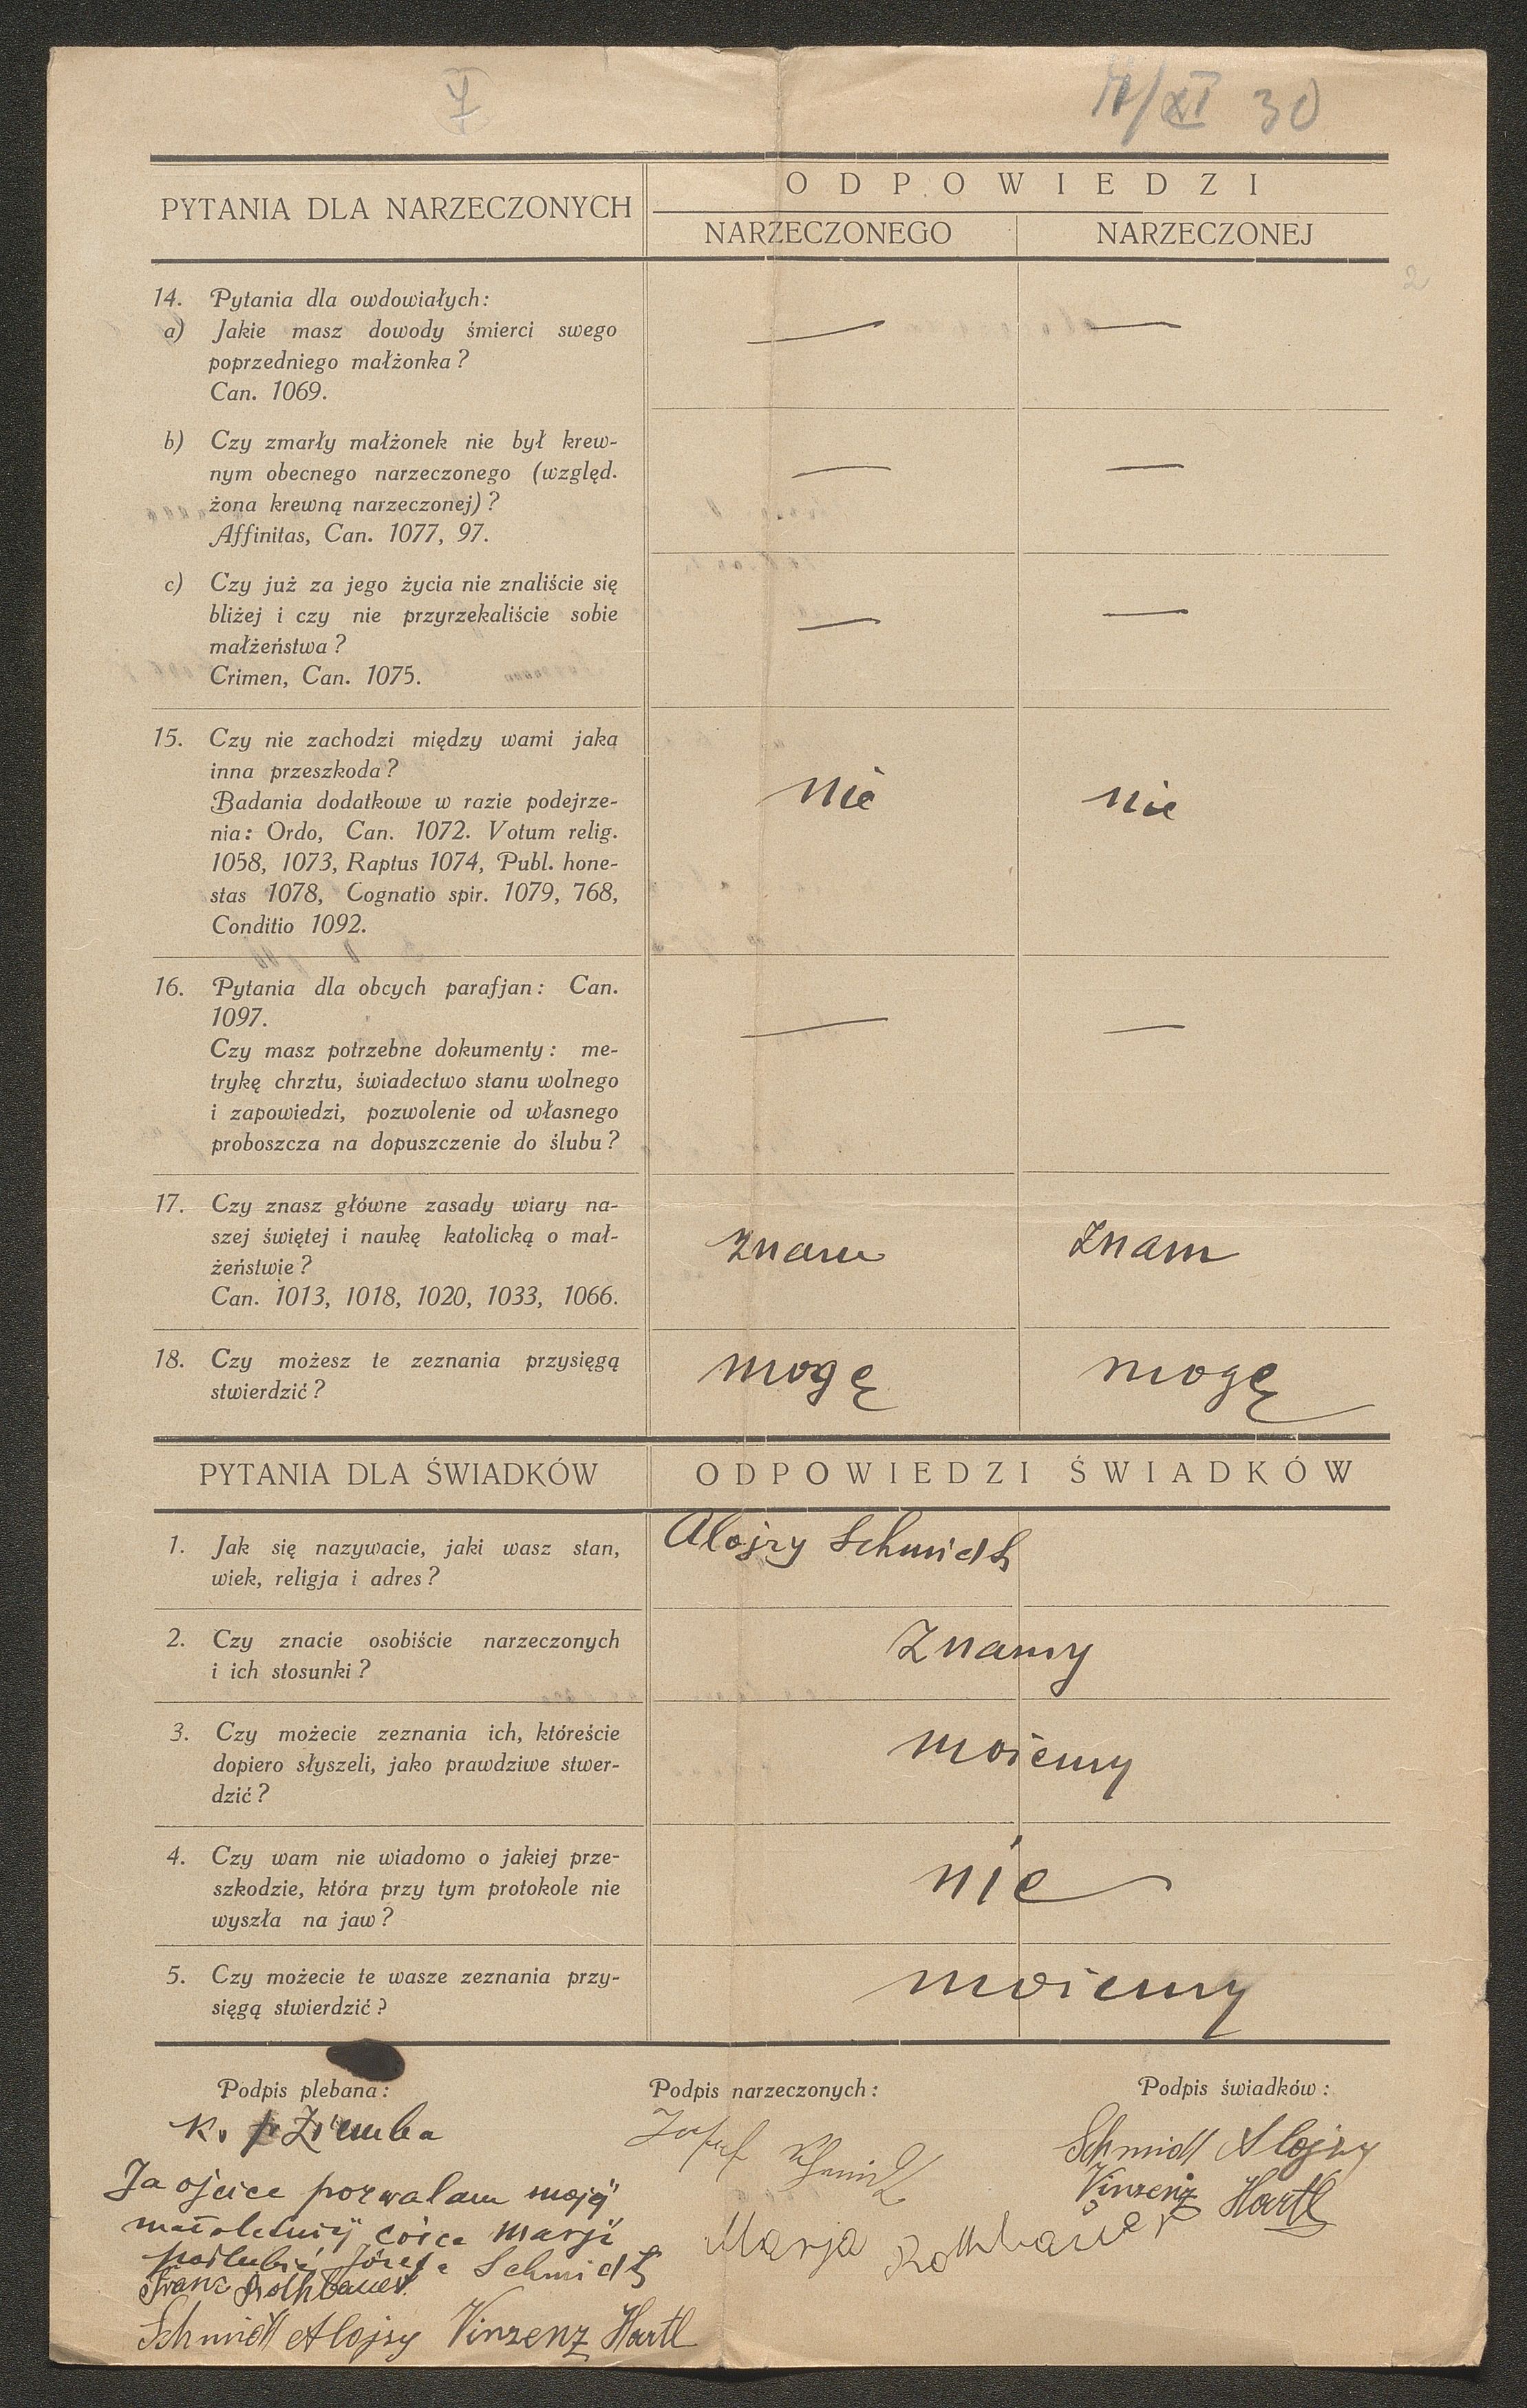 /XI 30
2
PYTANIA DLA NARZECZONYCH
ODPOWIEDZI
NARZECZONEGO
NARZECZONEJ
14. Pytania dla owdowiałych:
a) Jakie masz dowody śmierci swego
poprzedniego małżonka?
Can. 1069.
— —
b) Czy zmarły małżonek nie był krew-
nym obecnego narzeczonego (względ.
żona krewną narzeczonej)?
Affinitas, Can. 1077, 97.
— —
c) Czy już za jego życia nie znaliście się
bliżej i czy nie przyrzekaliście sobie
małżeństwa?
Crimen, Can. 1075.
— —
15. Czy nie zachodzi między wami jaka
inna przeszkoda?
Badania dodatkowe w razie podejrze-
nia: Ordo, Can. 1072. Votum relig.
1058, 1073, Raptus 1074, Publ. hone-
stas 1078, Cognatio spir. 1079, 768,
Conditio 1092.
nie nie
16. Pytania dla obcych parafjan: Can.
1097.
Czy masz potrzebne dokumenty: me-
trykę chrztu, świadectwo stanu wolnego
i zapowiedzi, pozwolenie od własnego
proboszcza na dopuszczenie do ślubu?
— —
17. Czy znasz główne zasady wiary na-
szej świętej i naukę katolicką o mał-
żeństwie?
Can. 1013, 1018, 1020, 1033, 1066.
znam znam
18. Czy możesz te zeznania przysięgą
stwierdzić?
mogę mogę
PYTANIA DLA ŚWIADKÓW
ODPOWIEDZI ŚWIADKÓW
1. Jak się nazywacie, jaki wasz stan,
wiek, religja i adres?
Alojzy Schmidt
2. Czy znacie osobiście narzeczonych
i ich stosunki?
Znamy
3. Czy możecie zeznania ich, któreście
dopiero słyszeli, jako prawdziwe stwer-
dzić?
możemy
4. Czy wam nie wiadomo o jakiej prze-
szkodzie, która przy tym protokole nie
wyszła na jaw?
nie
5. Czy możecie te wasze zeznania przy-
sięgą stwierdzić?
możemy
Podpis plebana:
Ziemba
Podpis narzeczonych:
Josef Schmidt
Marja Rothbauer
Podpis świadków:
Schmidt Alojzy
Vinzenz Hartl
Ja ojciec pozwalam mojej
małoletniej córce Marji
poślubić Józefa Schmidt
Franz Rothbauer
Schmidt Alojzy Vinzenz Hartl